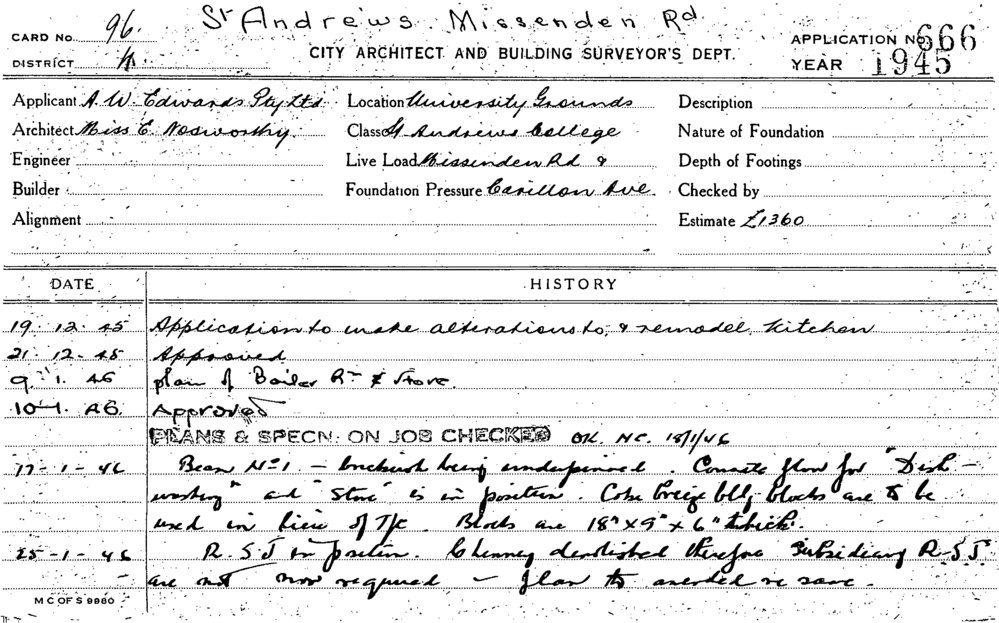 St Andrews. Missenden Rd
CARD No. 96.
CITY ARCHITECT AND BUILDING SURVEYOR'S DEPT.
APPLICATION No. 666
DISTRICT
YEAR 1945
Applicant A. W. Edwards Pty Ltd Location University Grounds Description
Architect Miss E. Nosworthy. Class St Andrews College Nature of Foundation
Engineer Live Load Missenden Rd & Depth of Footings
Builder Foundation Pressure Carillon Ave. Checked by
Alignment Estimate £1360
DATE HISTORY
19. 12. 45 Application to make alterations to, & remodel, kitchen
21. 12. 45 Approved
9. 1. 46 plan of Boiler Rm & Store.
10-1. 46. Approved
PLANS & SPECN. ON JOB CHECKED OK. 18/1/46
17-1-46 Beam No 1. – brickwork being underpinned. Concrete floor for "Dish-
washing" and "Store" is in position. Coke breeze blocks are to be
used in lieu of T/c. Blocks are 18" x 9" x 6" thick.
25-1-46 R.S.J in position. Chimney demolished therefore subsidiary R.S.J's
are not now required – plan to be amended re same.
M C OF S 9960